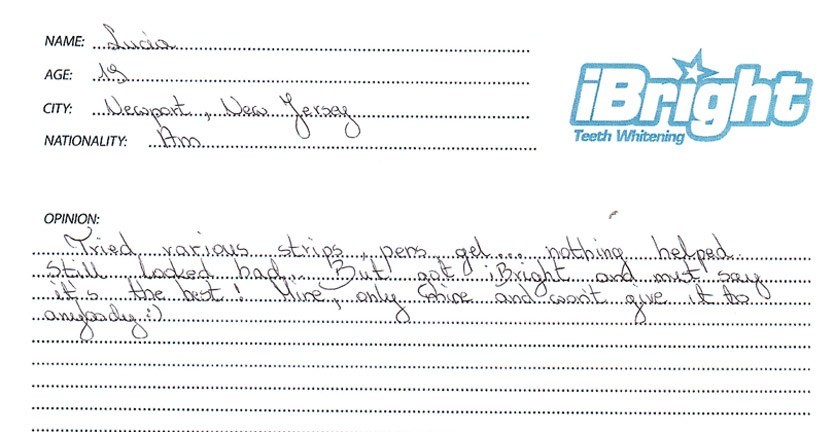 NAME: Lucia
AGE: 19
CITY: Newport, New Jersey
NATIONALITY: Am
iBright
Teeth Whitening
OPINION:
Tried various strips, pens, gel... nothing helped.
Still looked bad... But got iBright and must say
it's the best! Mine, only mine and won't give it to
anybody :)